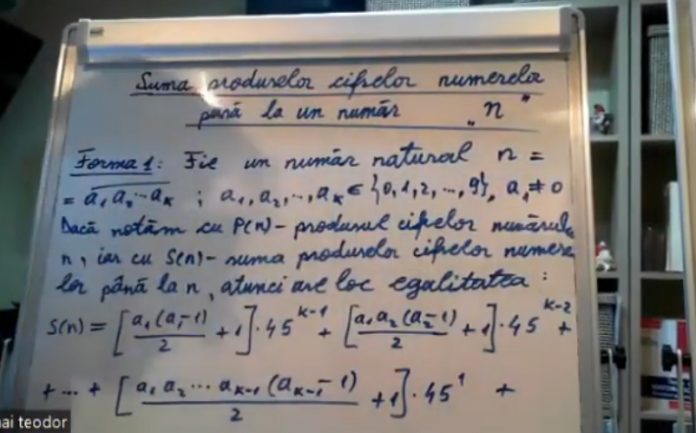 Suma produselor cifrelor numerelor
până la un număr „n”
Forma 1: Fie un număr natural n =
= a₁a₂…aₖ ; a₁, a₂, …, aₖ ∈ {0, 1, 2, …, 9}, a₁ ≠ 0
Dacă notăm cu P(n) – produsul cifrelor numărului
n, iar cu S(n) – suma produselor cifrelor numere
lor până la n, atunci are loc egalitatea :
S(n) = [a₁(a₁-1)/2 + 1]·45^(k-1) + [a₁a₂(a₂-1)/2 + 1]·45^(k-2) +
+ … + [a₁a₂…aₖ₋₁(aₖ₋₁-1)/2 + 1]·45¹ +
ai teodor